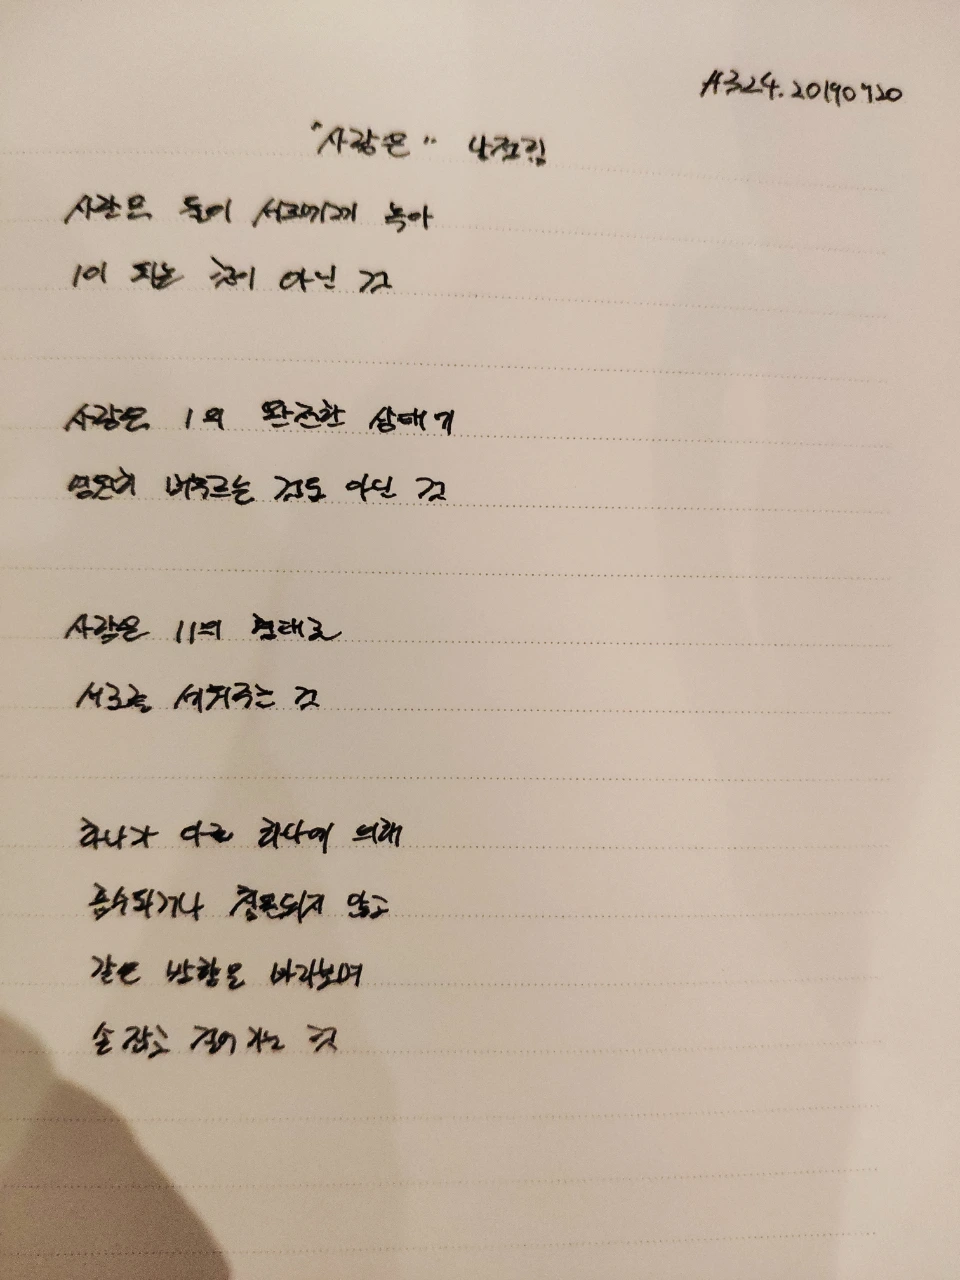 #324. 20190720
"사랑은"
사랑은 둘이 서로에게 녹아
1이 되는 것이 아닌 것
사랑은 1의 완전한 상태가
영원히 머무르는 것도 아닌 것
사랑은 11의 형태로
서로를 세워주는 것
하나가 다른 하나에 의해
흡수되거나 점유되지 않고
같은 방향을 바라보며
손 잡고 걸어가는 것